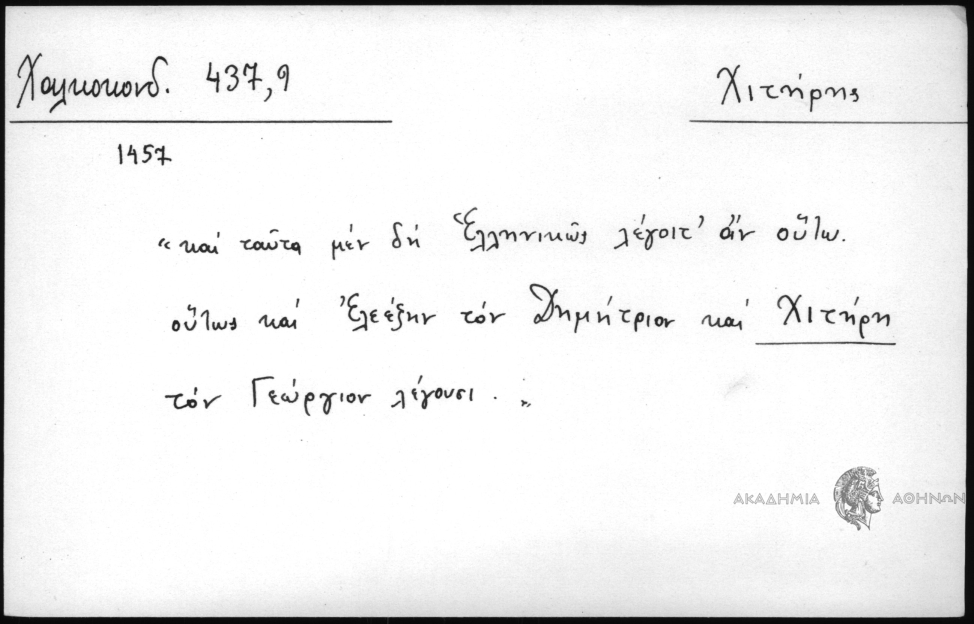 Χαλκοκονδ. 437,9
Χιτήρης
1457
« καί ταῦτα μέν δή Ἑλληνικῶς λέγοιτ' ἄν οὕτω.
οὕτως καί Ἐλεέξην τόν Δημήτριον καί Χιτήρη
τόν Γεώργιον λέγουσι. »
ΑΚΑΔΗΜΙΑ ΑΘΗΝΩΝ